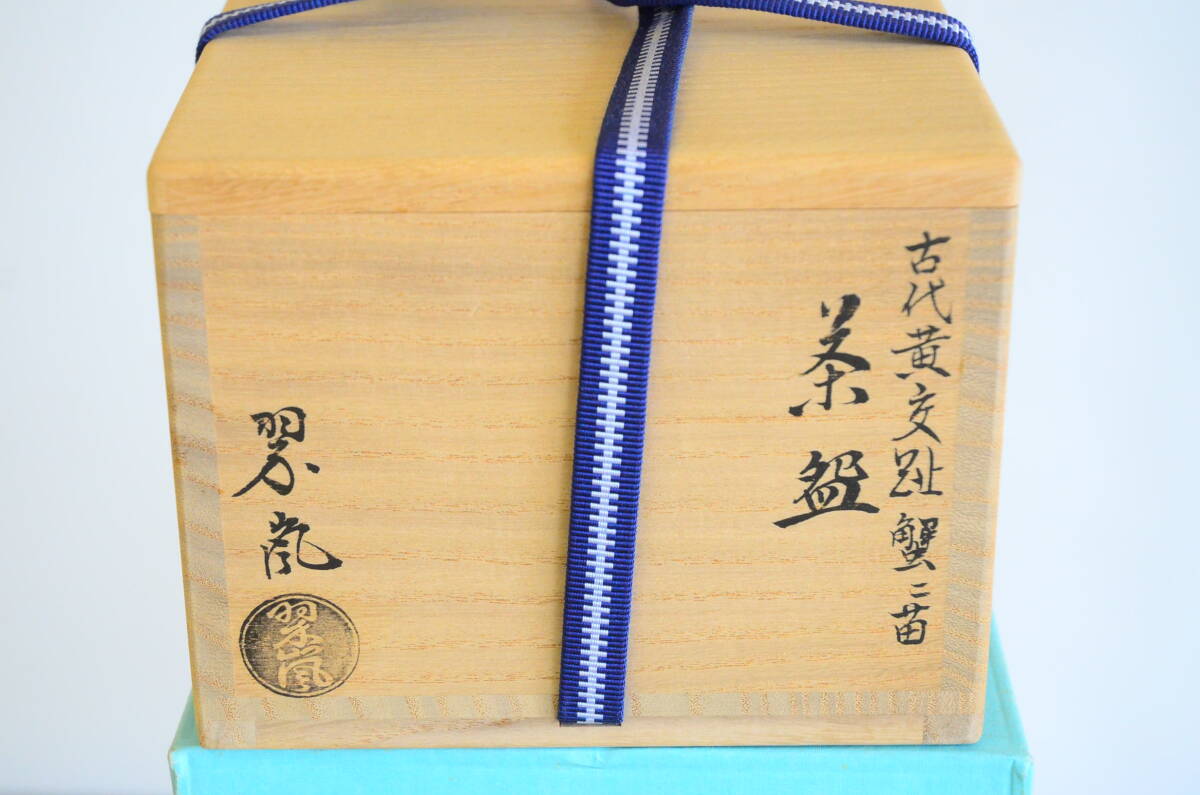 古代黄交趾蟹ニ苗
茶盌
翠嵐
翠嵐